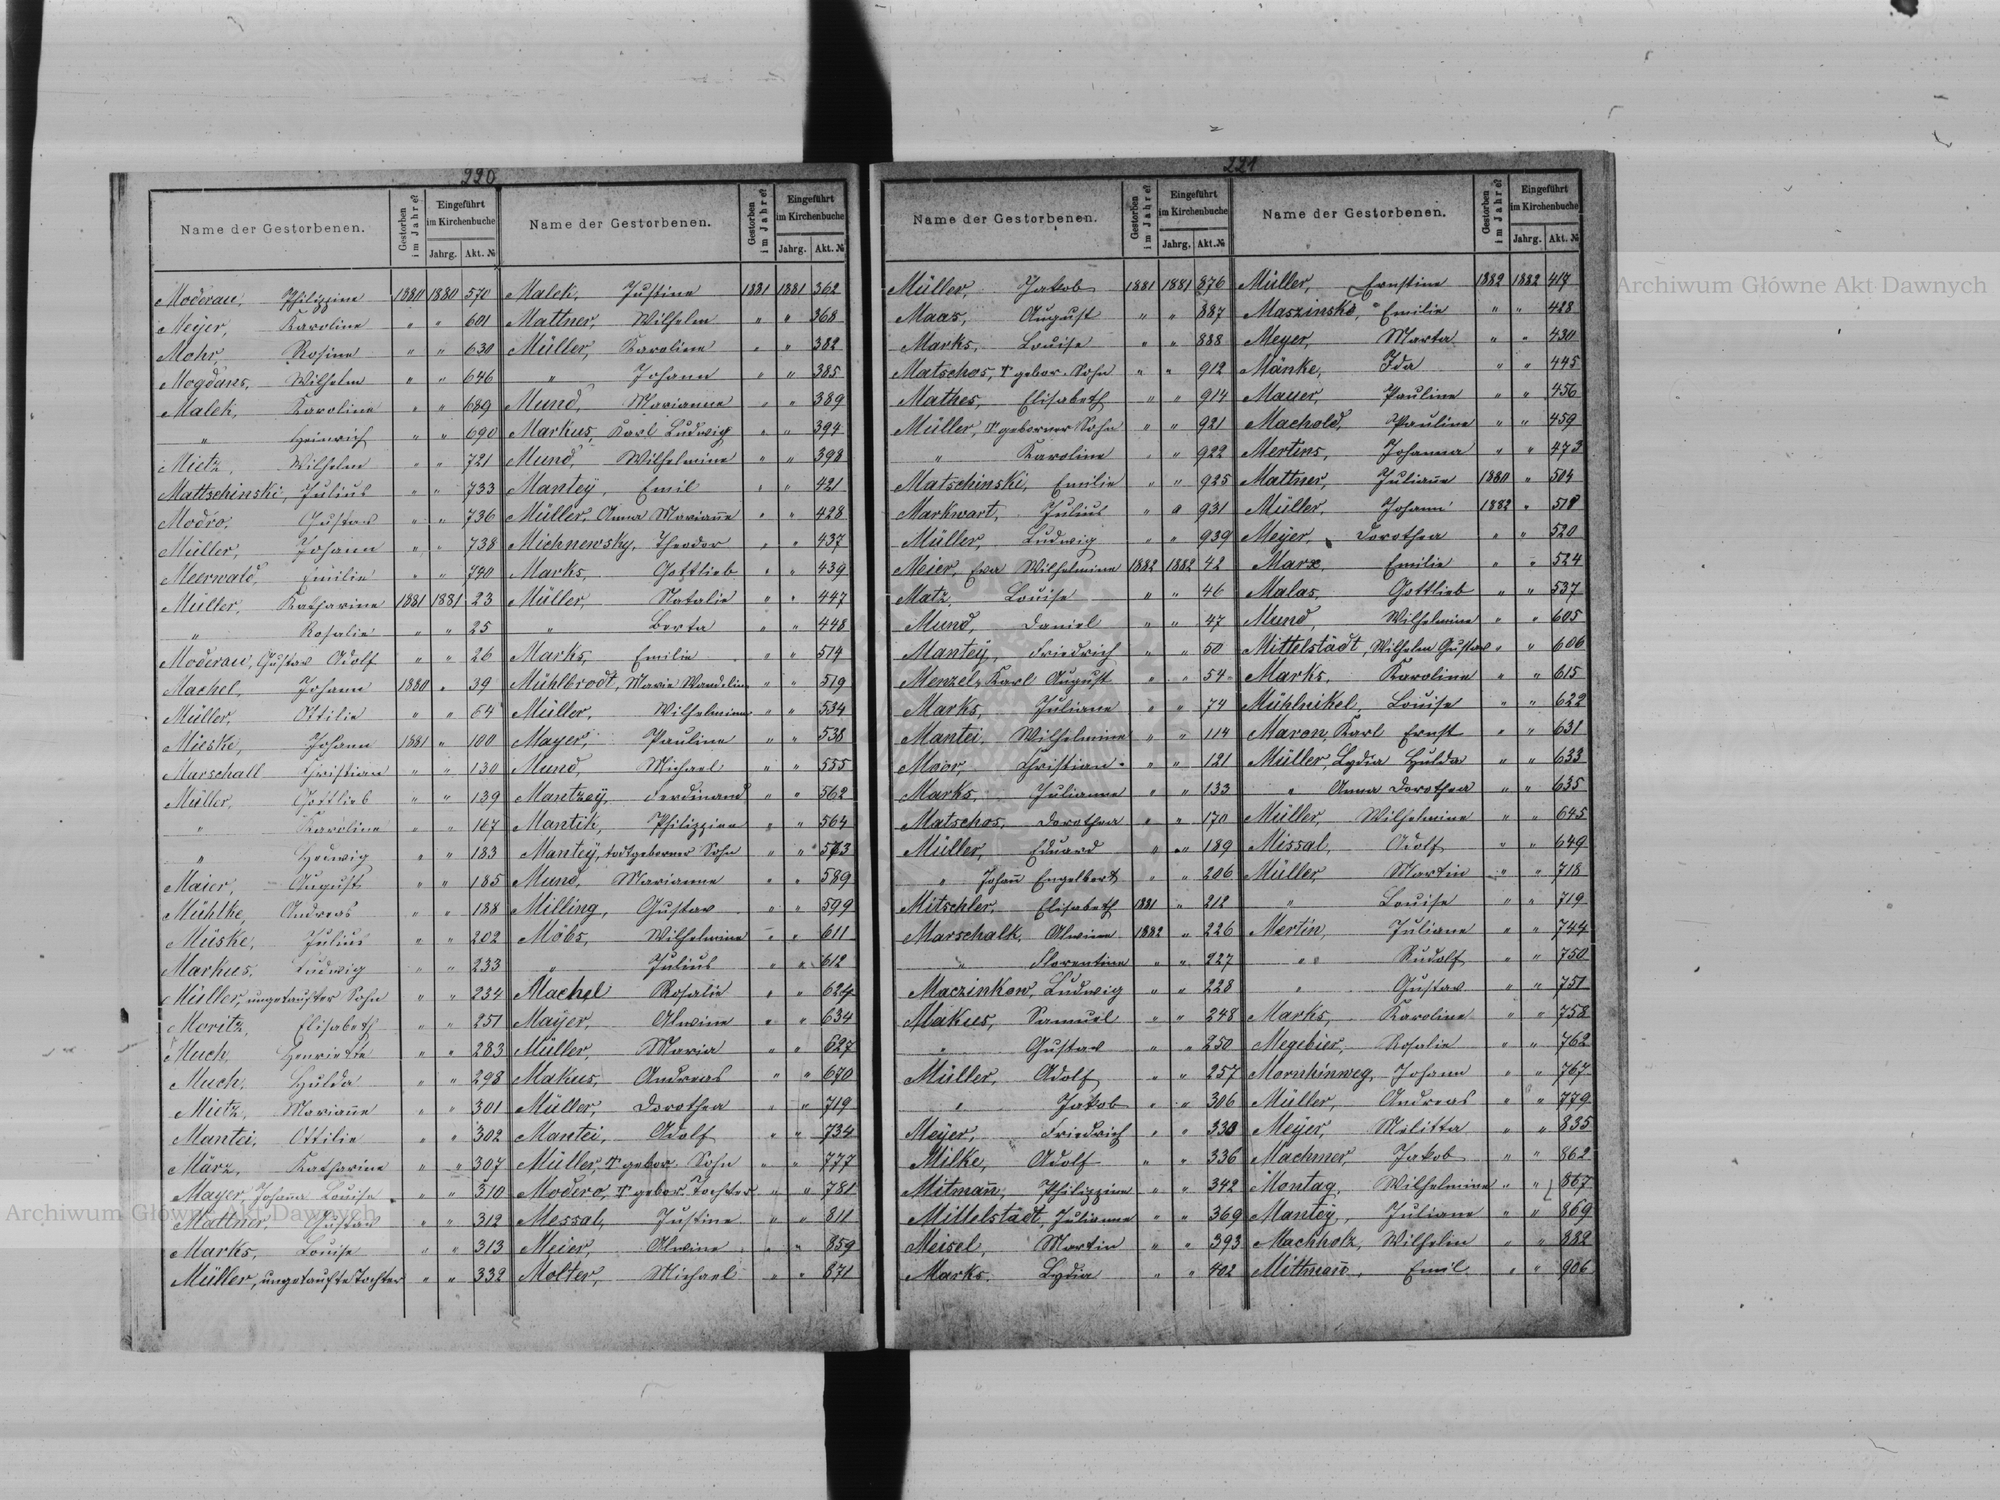 220
Name der Gestorbenen. Gestorben im Jahre Eingeführt im Kirchenbuche Jahrg. Akt. №
Moderau, Philippine 1880 1880 570
Meyer, Karoline " " 601
Mohr, Rosine " " 630
Mogdans, Wilhelm " " 646
Malek, Karoline " " 689
" Heinrich " " 690
Mietz, Wilhelm " " 721
Mattschinski, Julius " " 733
Modro, Gustav " " 736
Müller, Johann " " 738
Meerwald, Emilie " " 740
Müller, Katharine 1881 1881 23
" Rosalie " " 25
Moderau, Gustav Adolf " " 26
Machel, Johann 1880 " 39
Müller, Ottilie " " 64
Mieske, Johann 1881 " 100
Marschall Christian " " 130
Müller, Gottlieb " " 139
" Karoline " " 167
" Hedwig " " 183
Maier, August " " 185
Mühlke, Andreas " " 188
Müske, Julius " " 202
Markus, Ludwig " " 233
Müller, ungetaufter Sohn " " 234
Moritz, Elisabeth " " 251
Much, Henriette " " 283
Much, Hulda " " 298
Mietz, Marian̄e " " 301
Mantei, Ottilie " " 302
März, Katharine " " 307
Mayer, Johan̄a Louise " " 310
Mattner, Gustav " " 312
Marks, Louise " " 313
Müller, ungetaufte Tochter " " 332
Name der Gestorbenen. Gestorben im Jahre Eingeführt im Kirchenbuche Jahrg. Akt. №
Malek, Justine 1881 1881 362
Mattner, Wilhelm " " 368
Müller, Karoline " " 382
" Johann " " 385
Mund, Marianne " " 389
Markus, Karl Ludwig " " 394
Mund, Wilhelmine " " 398
Mantey, Emil " " 421
Müller, Anna Marian̄e " " 428
Michnewsky, Theodor " " 437
Marks, Gottlieb " " 439
Müller, Natalie " " 447
" Berta " " 448
Marks, Emilie " " 519
Mühlbrodt, Marie Wandeline " " 519
Müller, Wilhelmine " " 534
Mayer, Pauline " " 538
Mund, Michael " " 555
Mantzey, Ferdinand " " 562
Mantik, Philippine " " 564
Mantey, todtgeborner Sohn " " 573
Mund, Marianne " " 589
Milling, Gustav " " 599
Möbs, Wilhelmine " " 611
" Julius " " 612
Machel Rosalie " " 624
Mayer, Alwine " " 634
Müller, Maria " " 627
Makus, Andreas " " 670
Müller, Dorothea " " 719
Mantei, Adolf " " 734
Müller, gebor. Sohn " " 777
Modero, gebor. Tochter " " 781
Messal, Justine " " 811
Meier, Alwine " " 859
Molter, Michael " " 871
221
Name der Gestorbenen. Gestorben im Jahre Eingeführt im Kirchenbuche Jahrg. Akt. №
Müller, Jakob 1881 1881 876
Maas, August " " 887
Marks, Louise " " 888
Matschos, gebor. Sohn " " 912
Mathes, Elisabeth " " 914
Müller, geborner Sohn " " 921
" Karoline " " 922
Matschinski, Emilie " " 925
Markwart, Julius " " 931
Müller, Ludwig " " 939
Meier, Eva Wilhelmine 1882 1882 42
Matz, Louise " " 46
Mund, Daniel " " 47
Mantey, Friedrich " " 50
Menzel, Karl August " " 54
Marks, Juliane " " 74
Mantei, Wilhelmine " " 114
Moor, Christian " " 121
Marks, Julianne " " 133
Matschos, Dorothea " " 170
Müller, Eduard " " 189
" Johan̄ Engelbert " " 206
Mitschler, Elisabeth 1881 " 212
Marschalk, Alwine 1882 " 226
" Florentine " " 227
Maczinkow, Ludwig " " 228
Makus, Samuel " " 248
" Gustav " " 250
Müller, Adolf " " 257
" Jakob " " 306
Meyer, Friedrich " " 330
Milke, Adolf " " 336
Mitman̄, Philippine " " 342
Mittelstädt, Julianne " " 369
Meisel, Martin " " 393
Marks, Lydia " " 402
Name der Gestorbenen. Gestorben im Jahre Eingeführt im Kirchenbuche Jahrg. Akt. №
Müller, Ernstine 1882 1882 417
Maszinske, Emilie " " 428
Meyer, Marta " " 430
Mänke, Ida " " 445
Mauer, Pauline " " 456
Machold, Pauline " " 459
Mertins, Johanna " " 473
Mattner, Julian̄e 1880 " 504
Müller, Johann 1882 " 518
Meyer, Dorothea " " 520
Marx, Emilie " " 524
Malas, Gottlieb " " 537
Mund, Wilhelmine " " 605
Mittelstädt, Wilhelm Gustav " " 606
Marks, Karoline " " 615
Mühlnikel, Louise " " 622
Maron, Karl Ernst " " 631
Müller, Lydia Hulda " " 633
" Anna Dorothea " " 635
Müller Wilhelmine " " 645
Missal, Adolf " " 649
Müller, Martin " " 718
" Louise " " 719
Mertin, Juliane " " 744
" Rudolf " " 750
" Gustav " " 751
Marks, Karoline " " 758
Megebier, Rosalie " " 762
Mornhinweg, Johann " " 767
Müller, Andreas " " 779
Meyer, Melitta " " 835
Machner, Jakob " " 862
Montag, Wilhelmine " " 867
Mantey, Juliane " " 869
Machholz, Wilhelm " " 882
Mitman̄, Emil " " 906
Archiwum Główne Akt Dawnych
Archiwum Główne Akt Dawnych